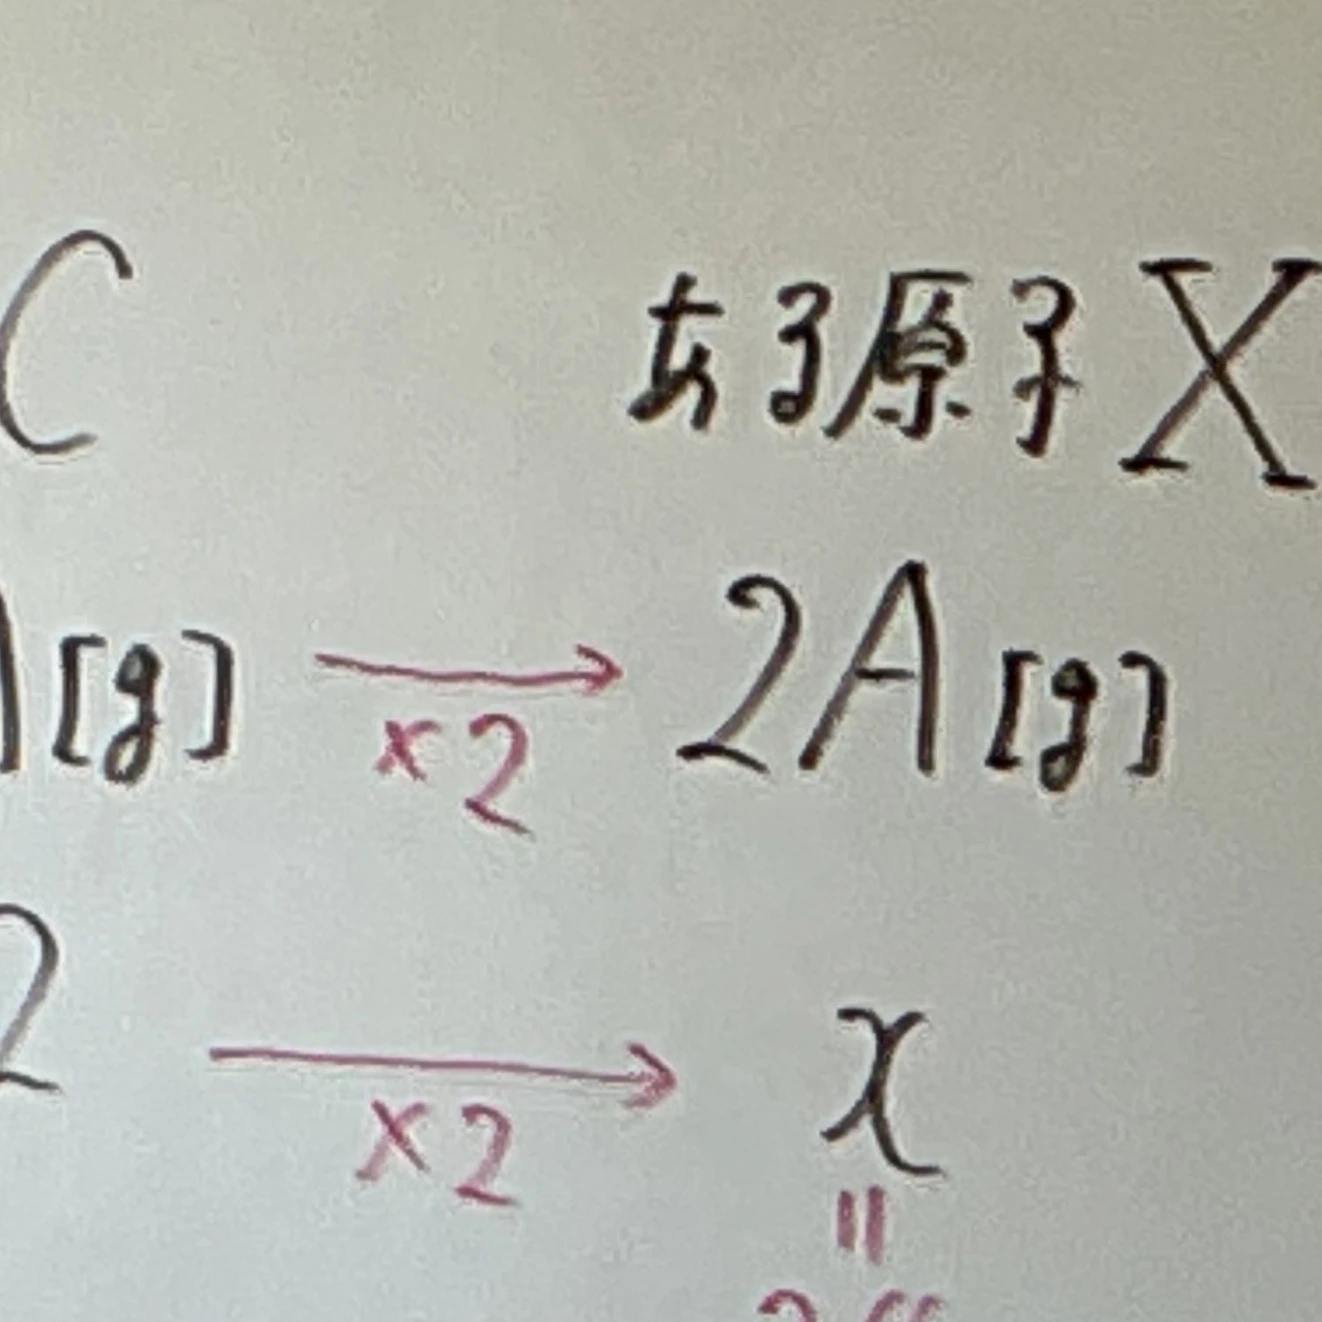 C ある原子X
[g] → 2A[g]
×2
2 → x
×2
=